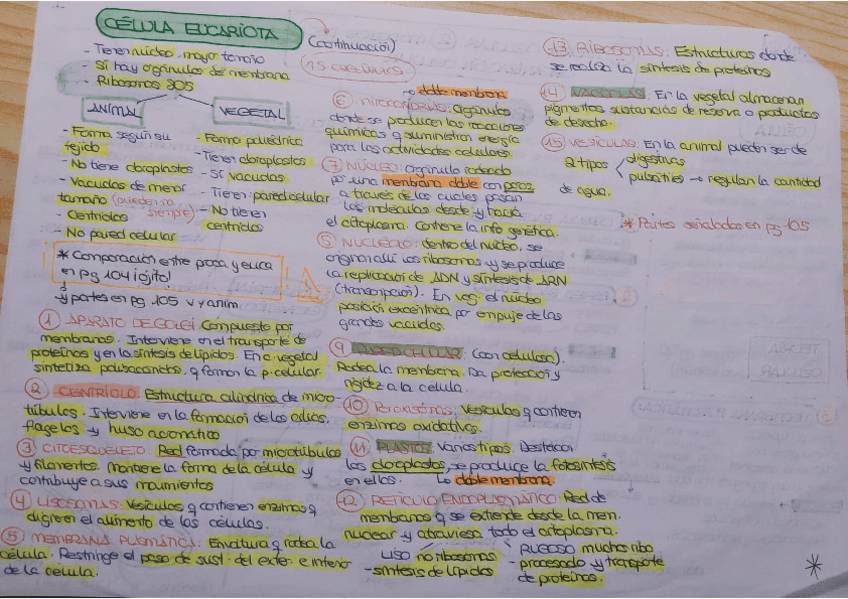 CÉLULA EUCARIOTA
- Tienen núcleo, mayor tamaño
- Sí hay orgánulos de membrana
- Ribosomas 80S
ANIMAL
- Forma según su
tejido
- No tiene cloroplastos
- Vacuolas de menor
tamaño (pueden no
siempre)
- Centriolos
- No pared celular
VEGETAL
- Forma poliédrica
- Tienen cloroplastos
- Sí vacuolas
- Tienen pared celular
- No tienen
centriolos
* Comparación entre proca. y euca
en pg 104 ¡ojito!
y partes en pg. 105 v y anim.
1 APARATO DE GOLGI Compuesto por
membranas. Interviene en el transporte de
proteínas y en la síntesis de lípidos. En c. vegetal
sintetiza polisacáridos, q forman la p. celular.
2 CENTRIOLO Estructura cilíndrica de micro-
túbulos. Interviene en la formación de los cilios,
flagelos y huso acromático
3 CITOESQUELETO: Red formada por microtúbulos
y filamentos. Mantiene la forma de la célula y
contribuye a sus movimientos
4 LISOSOMAS: Vesículas q contienen enzimas q
digieren el alimento de las células.
5 MEMBRANA PLASMÁTICA: Envoltura q rodea la
célula. Restringe el paso de sust. del exter. e interior
de la célula.
(continuación)
15 orgánulos
→ doble membrana
6 MITOCONDRIAS: Orgánulo
donde se producen las reacciones
químicas q suministran energía
para las actividades celulares.
7 NÚCLEO: Orgánulo rodeado
por una membrana doble con poros
a través de los cuales pasan
las moléculas desde y hacia
el citoplasma. Contiene la info genética.
8 NUCLÉOLO: dentro del núcleo, se
originan allí los ribosomas y se produce
la replicación de ADN y síntesis de ARN
(transcripción). En veg. el núcleo
posición excéntrica por empuje de las
grandes vacuolas.
9 PARED CELULAR: (con celulosa).
Rodea la membrana. Da protección y
rigidez a la célula.
10 Peroxisomas: Vesículas q contienen
enzimas oxidativas.
11 PLASTOS Varios tipos. Destacan
los cloroplastos, se produce la fotosíntesis
en ellos. ↳ doble membrana
12 RETÍCULO ENDOPLASMÁTICO Red de
membranas q se extiende desde la mem.
nuclear y atraviesa todo el citoplasma.
LISO no ribosomas
- síntesis de lípidos
RUGOSO muchos ribo
- procesado y transporte
de proteínas.
13 RIBOSOMAS: Estructuras donde
se realiza la síntesis de proteínas
14 VACUOLAS: En la vegetal almacenan
pigmentos, sustancias de reserva o productos
de desecho.
15 VESÍCULAS: En la animal pueden ser de
2 tipos
digestivas
pulsátiles → regulan la cantidad
de agua.
* Partes señaladas en pg 105
*